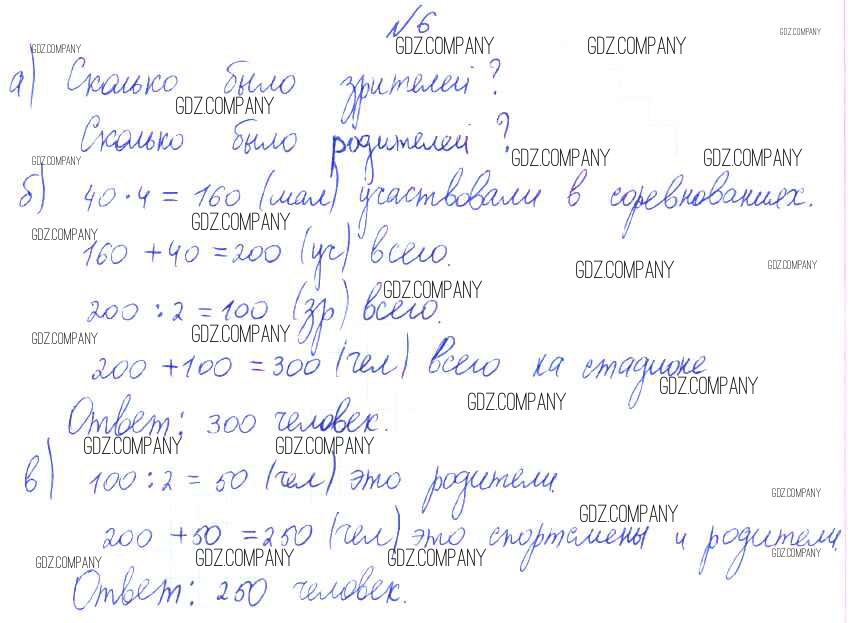 №6
GDZ.COMPANY GDZ.COMPANY GDZ.COMPANY GDZ.COMPANY
а) Сколько было зрителей?
GDZ.COMPANY
Сколько было родителей?
GDZ.COMPANY GDZ.COMPANY GDZ.COMPANY
б) 40·4 = 160 (мал) участвовали в соревнованиях.
GDZ.COMPANY GDZ.COMPANY
160 + 40 = 200 (уч) всего.
GDZ.COMPANY GDZ.COMPANY GDZ.COMPANY
200 : 2 = 100 (зр) всего.
GDZ.COMPANY GDZ.COMPANY
200 + 100 = 300 (чел) всего на стадионе
GDZ.COMPANY GDZ.COMPANY
Ответ: 300 человек.
GDZ.COMPANY GDZ.COMPANY
в) 100 : 2 = 50 (чел) это родители.
GDZ.COMPANY GDZ.COMPANY
200 + 50 = 250 (чел) это спортсмены и родители.
GDZ.COMPANY GDZ.COMPANY GDZ.COMPANY GDZ.COMPANY
Ответ: 250 человек.